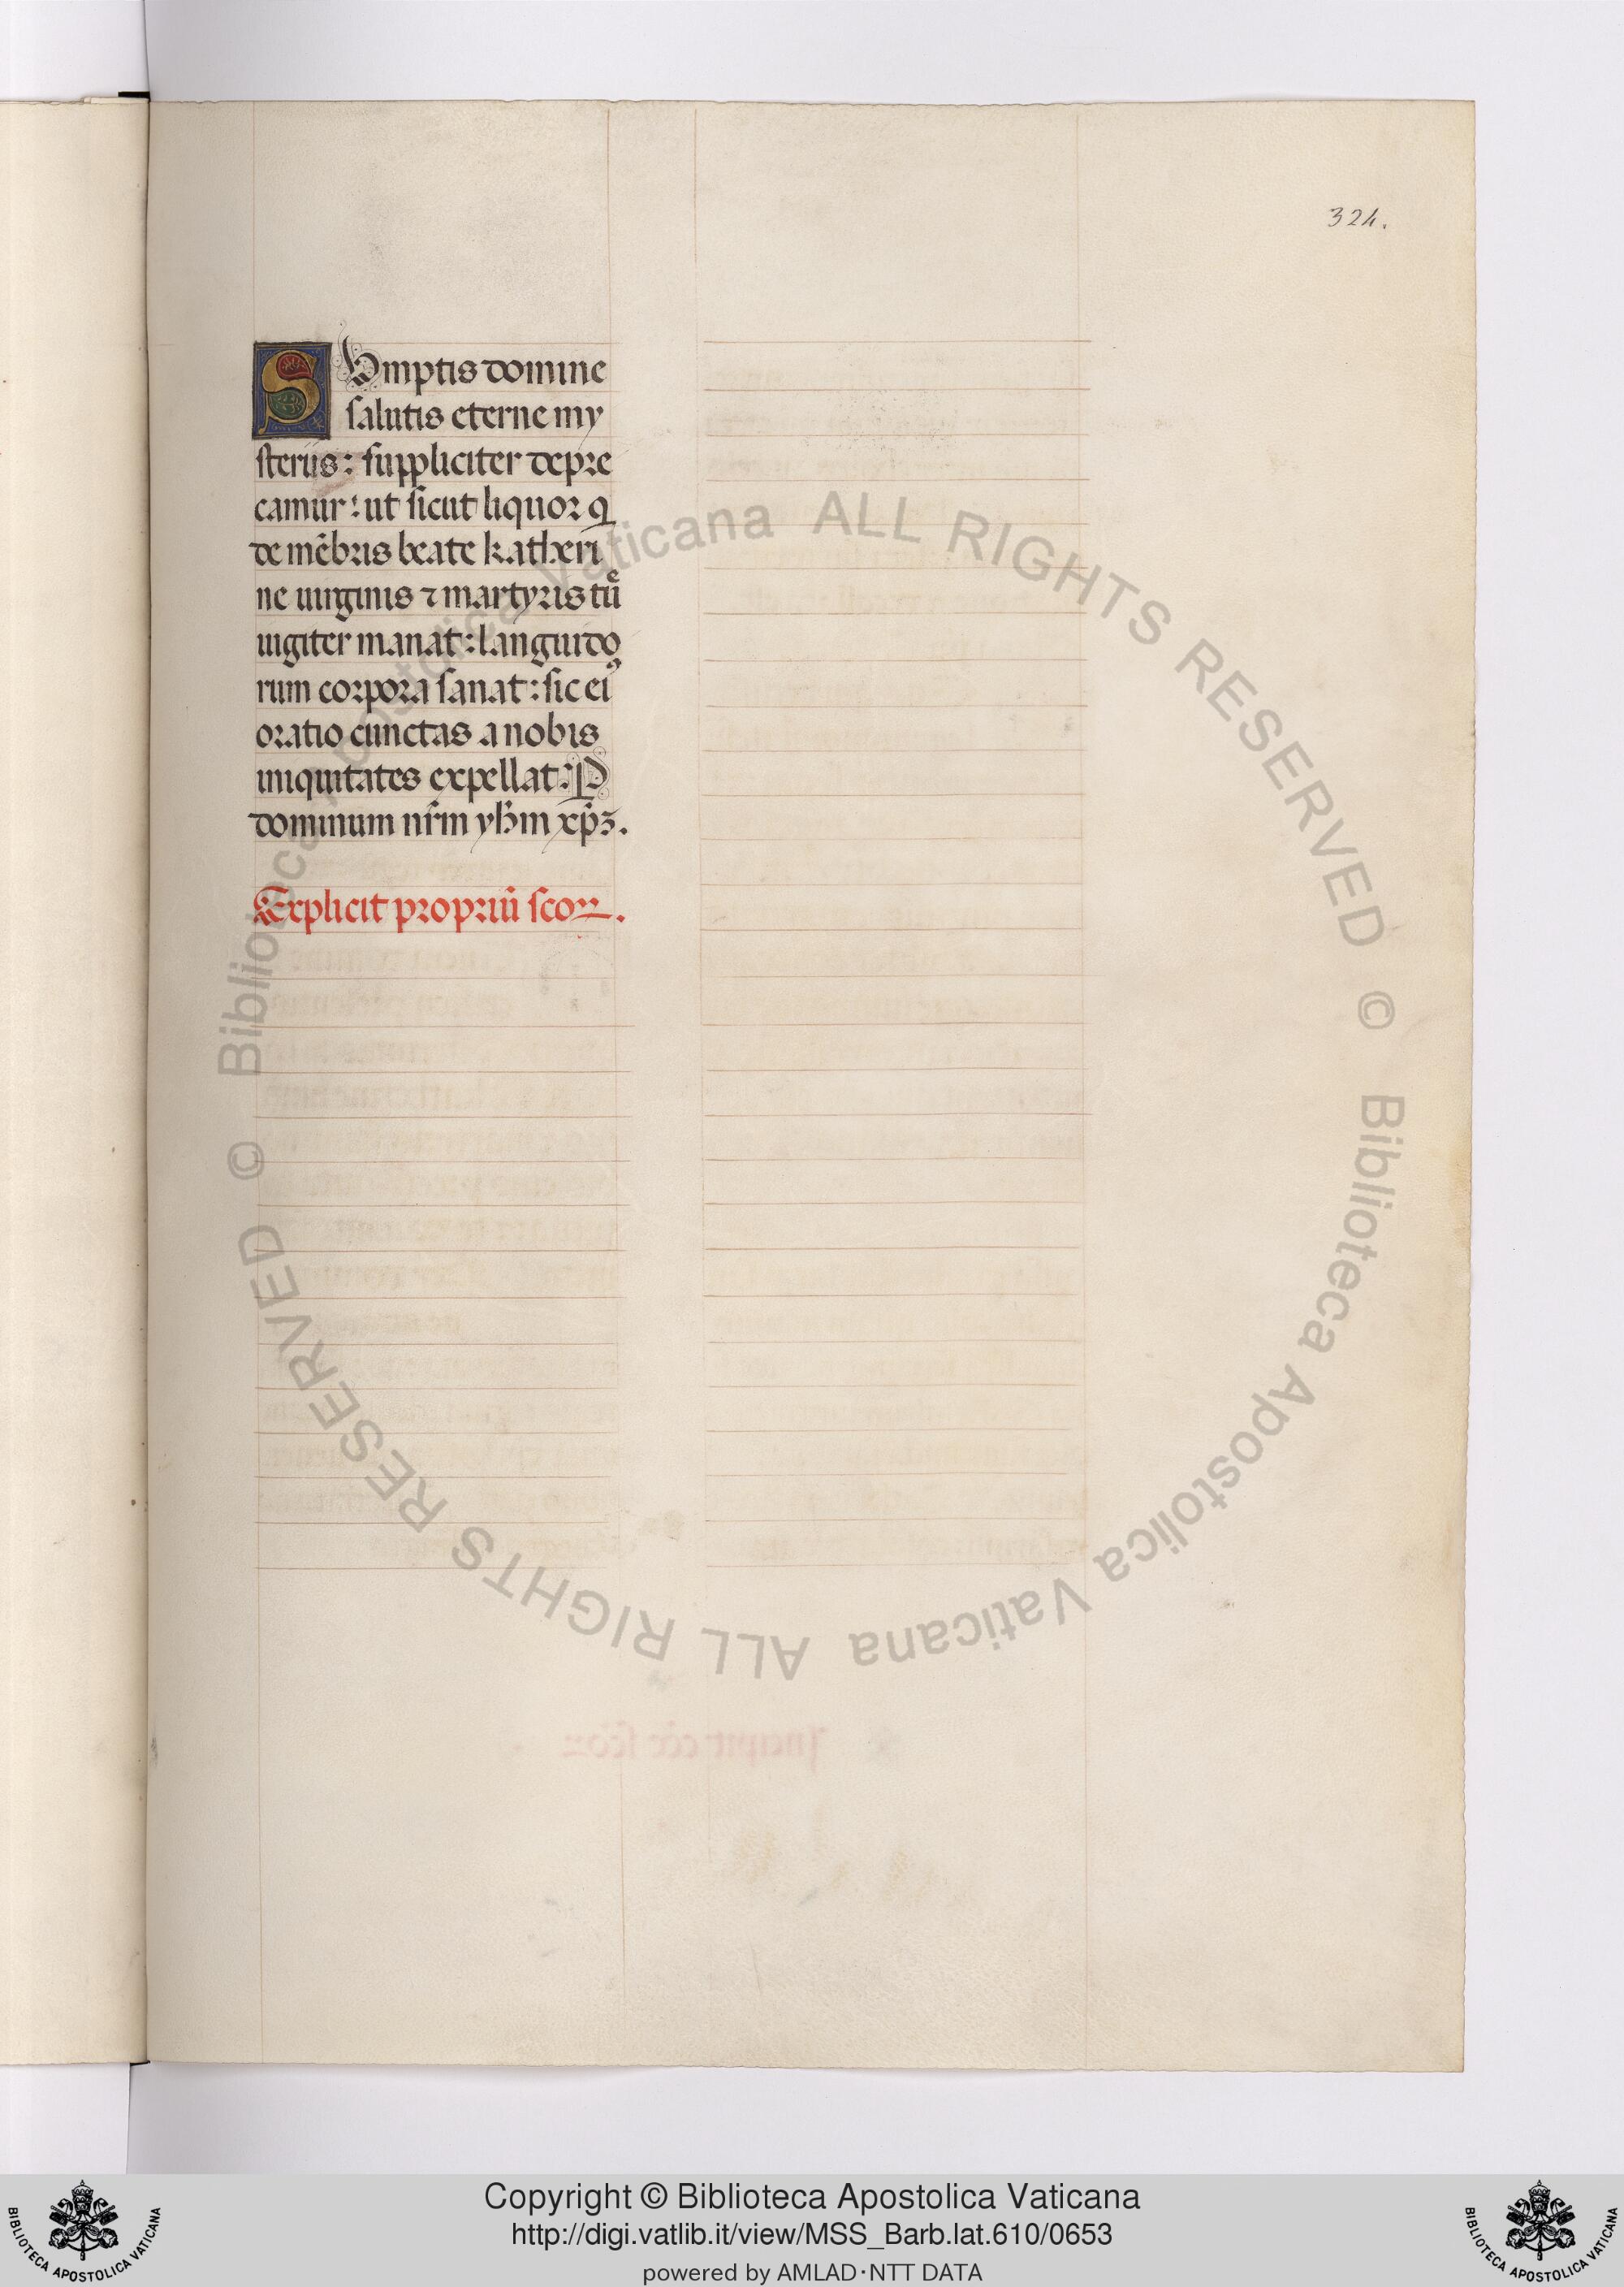 324.
SUmptis domine
salutis eterne my
sterijs: suppliciter depre
camur: ut sicut liquor q
de mēbris beate katheri
ne uirginis ⁊ martyris tuē
iugiter manat: languido
rum corpora sanat: sic eiꝰ
oratio cunctas a nobis
iniquitates expellat: P
dominum nr̄m yhm xp̄ꝫ.
Explicit propriū scoꝝ.
© Biblioteca Apostolica Vaticana ALL RIGHTS RESERVED
© Biblioteca Apostolica Vaticana ALL RIGHTS RESERVED
Copyright © Biblioteca Apostolica Vaticana
http://digi.vatlib.it/view/MSS_Barb.lat.610/0653
powered by AMLAD·NTT DATA
BIBLIOTECA APOSTOLICA VATICANA
BIBLIOTECA APOSTOLICA VATICANA